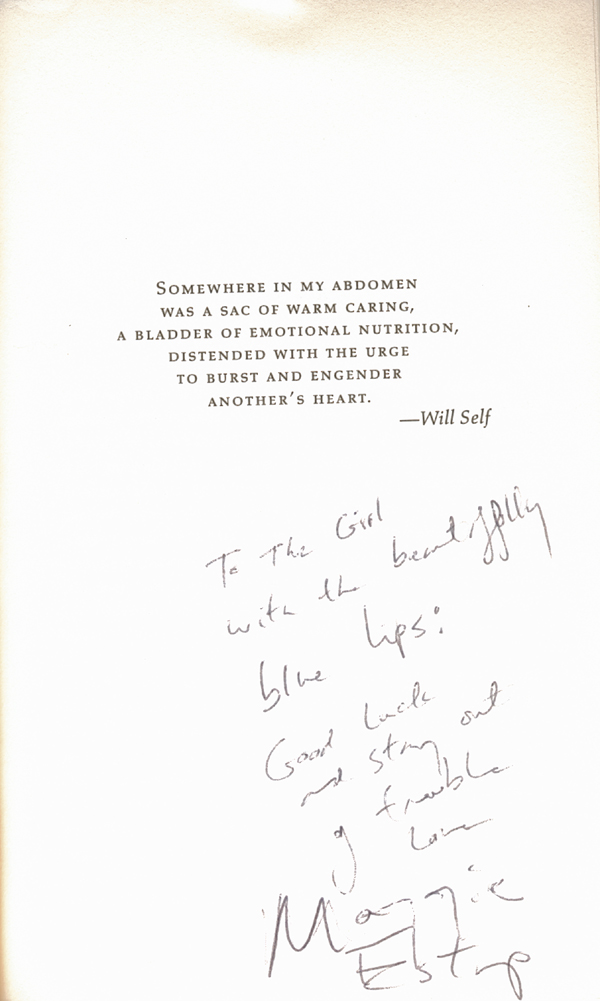 SOMEWHERE IN MY ABDOMEN
WAS A SAC OF WARM CARING,
A BLADDER OF EMOTIONAL NUTRITION,
DISTENDED WITH THE URGE
TO BURST AND ENGENDER
ANOTHER'S HEART.
—Will Self
To The Girl
with the beautifully
blue lips:
Good Luck
and stay out
of trouble
Love
Maggie
Estep